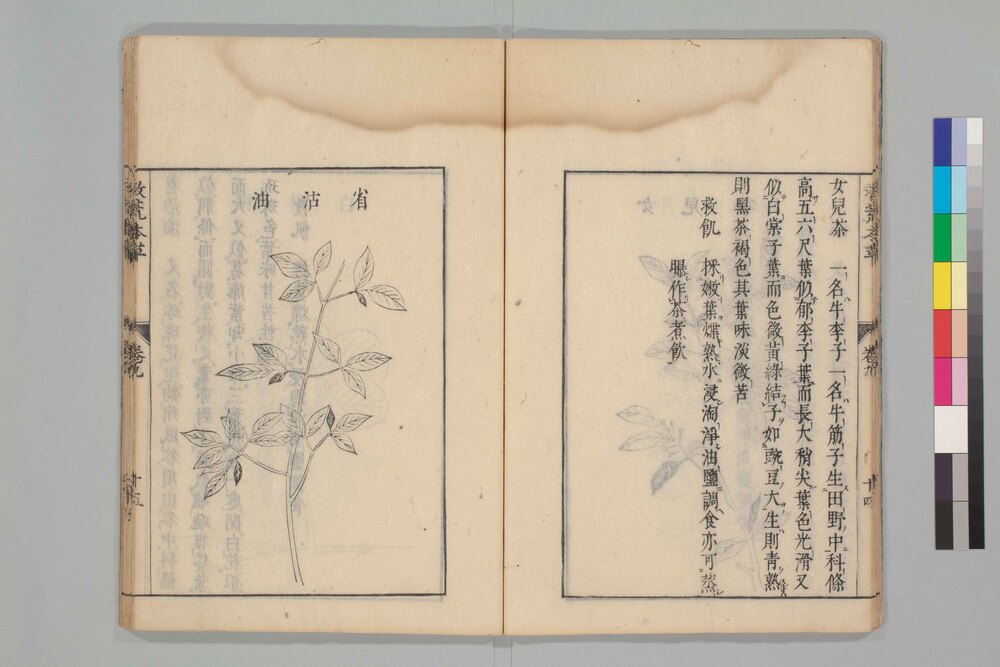 女兒茶 一名牛李子一名牛筋子生田野中科條
高五六尺葉似郁李子葉而長大稍尖葉色光滑又
似白棠子葉而色微黃綠結子如豌豆大生則青熟
則黑茶褐色其葉味淡微苦
救飢 採嫩葉煠熟水浸淘淨油鹽調食亦可蒸
曝作茶煮飲
省沽油
救荒本草
卷九
十五